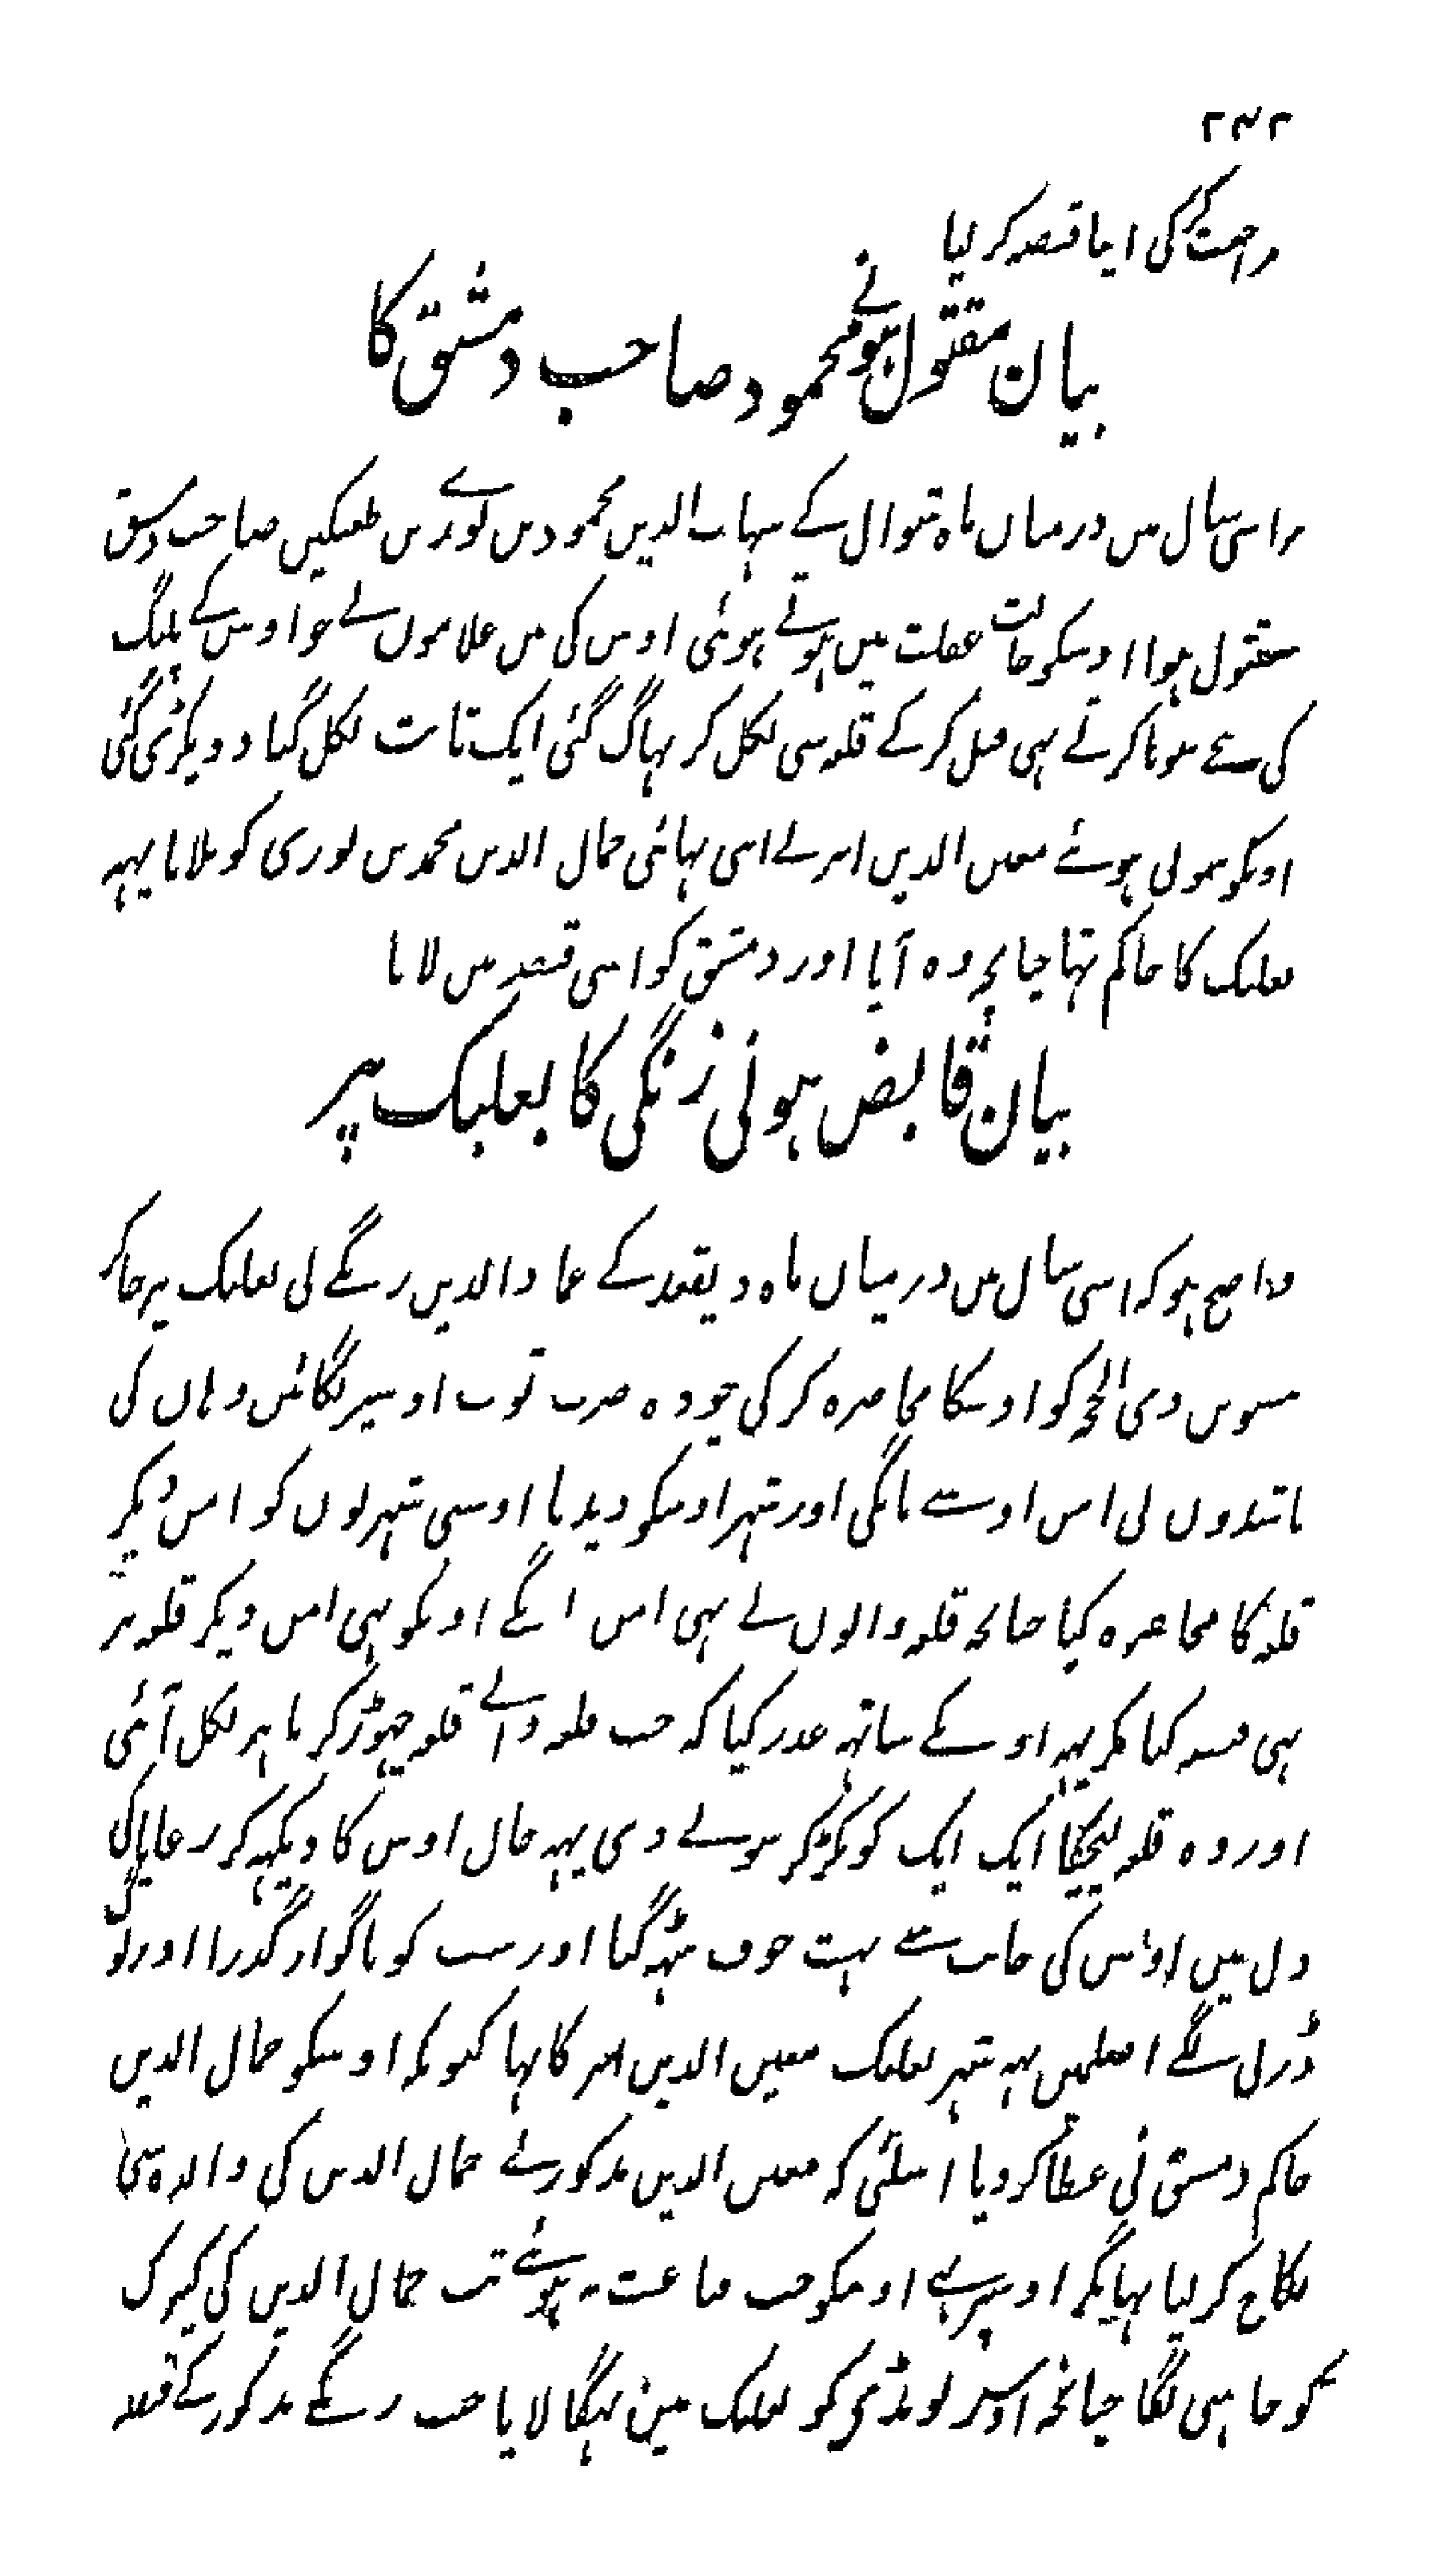 ۲۳۲
مراجعت کر گی اپنا قبضہ کر لیا
بیان مقتول ہونے محمود صاحب دمشق کا
اسی سال میں درمیان ماہ شوال کے شہاب الدین محمود بن توری بن طغتکین صاحب دمشق
مقتول ہوا اوسکو حالت غفلت میں سوتے ہوئی اوس کی تین غلاموں نے جو اوس کے پلنگ
کی نیچے سویا کرتے تہی قتل کر کے قلعہ سی نکل کر بہاگ گئی ایک تو نکل گیا دو پکڑی گئی
اونکو سولی ہوئے معین الدین انر نے اسی بہائی جمال الدین محمد بن توری کو بلایا یہہ
بعلبک کا حاکم تہا چنانچہ وہ آیا اور دمشق کو اپنی قبضہ میں لایا
بیان قابض ہونی زنگی کا بعلبک پر
واضح ہو کہ اسی سال میں درمیان ماہ ذیقعد کے عماد الدین زنگے نی بعلبک پر جاکر
بیسویں ذی الحجہ کو اوسکا محاصرہ کر کی چودہ ضرب توپ اوسپر لگائیں وہاں کی
باشندوں نی امن اوسے مانگی اور شہر اوسکو دیدیا اوسی شہریوں کو امن دیکر
قلعہ کا محاصرہ کیا چنانچہ قلعہ والوں نے بہی امن مانگے اونکو بہی امن دیکر قلعہ پر
بہی قبضہ کیا مگر یہہ اونکے ساتہہ غدر کیا کہ جب قلعہ والے قلعہ چہوڑ کر باہر نکل آئی
اور وہ قلعہ لیچکا ایک ایک کو پکڑ کر سولے دی یہہ حال اوس کا دیکہہ کر رعایا کی
دل میں اوس کی جانب سے بہت خوف بیٹہہ گیا اور سب کو ناگوار گذرا اور لوگ
ڈرنی لگے اصلمیں یہہ شہر بعلبک معین الدین انر کا تہا کیونکہ اوسکو جمال الدین
حاکم دمشق نی عطا کردیا اسلئی کہ معین الدین مذکور نے جمال الدین کی والدہ سی
نکاح کر لیا تہا مگر اوسپر بہے اوسکو جب قناعت نہ ہوئے تب جمال الدین کی کنیزک
کو چاہنی لگا چنانچہ اوس لونڈی کو بعلبک میں بہگا لایا جب زنگے مذکور کے قبضہ